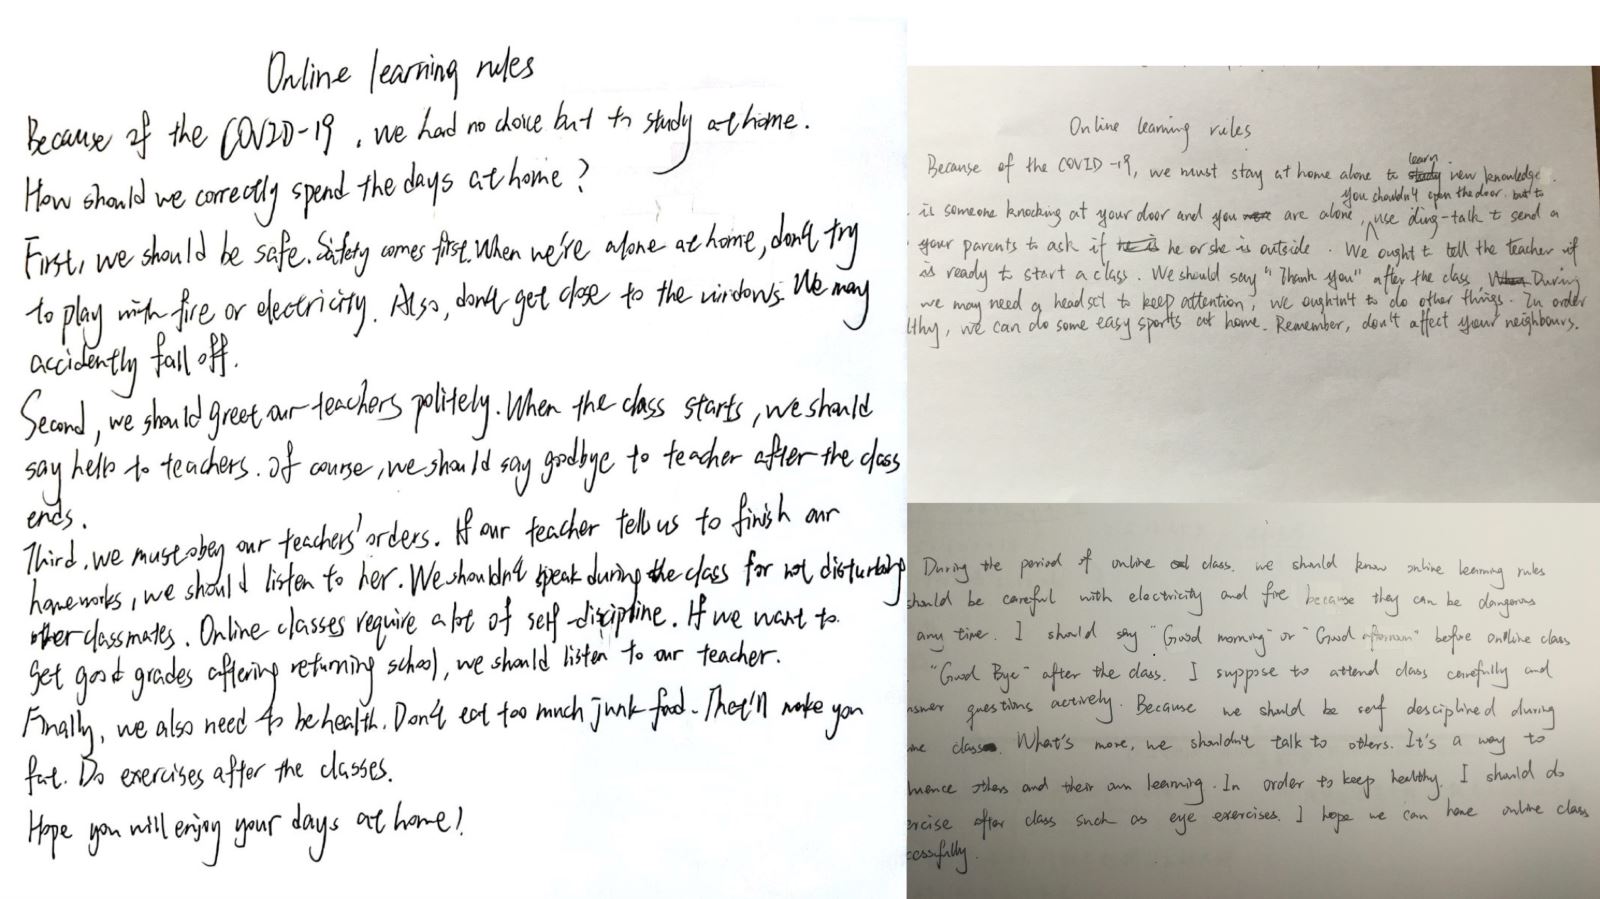 Online learning rules
Because of the COVID-19, we had no choice but to study at home.
How should we correctly spend the days at home?
First, we should be safe. Safety comes first. When we're alone at home, don't try
to play with fire or electricity. Also, don't get close to the windows. We may
accidently fall off.
Second, we should greet our teachers politely. When the class starts, we should
say hello to teachers. Of course, we should say goodbye to teacher after the class
ends.
Third, we must obey our teachers' orders. If our teacher tell us to finish our
homeworks, we should listen to her. We shouldn't speak during the class for not disturbing
other classmates. Online classes require a lot of self-discipline. If we want to
get good grades aftering returning school, we should listen to our teacher.
Finally, we also need to be health. Don't eat too much junk food. That'll make you
fat. Do exercises after the classes.
Hope you will enjoy your days at home!
Online learning rules
Because of the COVID-19, we must stay at home alone to learn new knowledge.
is someone knocking at your door and you are alone, you shouldn't open the door. but to use ding-talk to send a
your parents to ask if he or she is outside. We ought to tell the teacher if
is ready to start a class. We should say "Thank you" after the class. During
we may need a headset to keep attention, we oughtn't to do other things. In order
lthy, we can do some easy sports at home. Remember, don't affect your neighbours.
During the period of online class. we should know online learning rules
should be careful with electricity and fire because they can be dangerous
any time. I should say "Good morning" or "Good afternoon" before online class
"Good Bye" after the class. I suppose to attend class carefully and
nswer questions actively. Because we should be self desciplined during
ine class. What's more, we shouldn't talk to others. It's a way to
luence others and their own learning. In order to keep healthy, I should do
ercise after class such as eye exercises. I hope we can have online class
ccessfully.